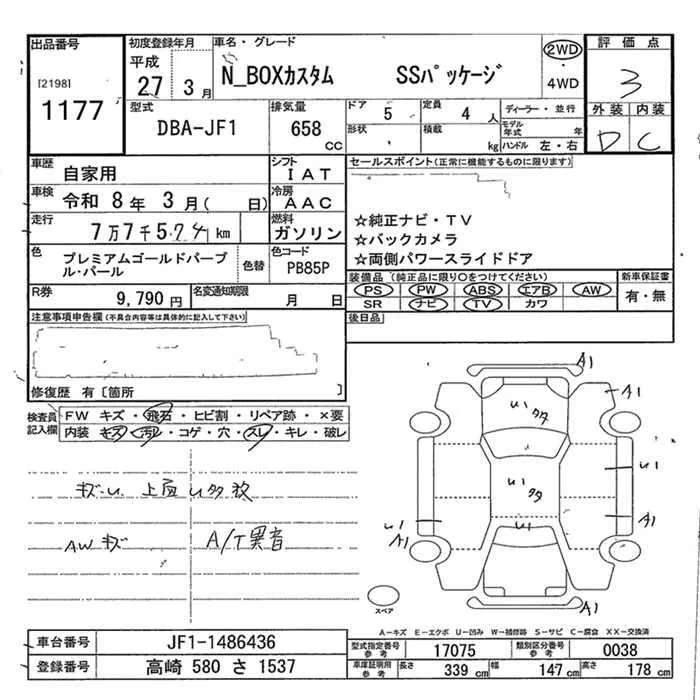 出品番号 初度登録年月 車名・グレード 評価点
[2198] 平成
1177 27 3月 N_BOXカスタム SSパッケージ 2WD ・ 4WD 3
型式 排気量 ドア 5 定員 4人 ディーラー・並行 外装 内装
DBA-JF1 658 CC 形状 積載 kg モデル年式 年 ハンドル 左・右 D C
車歴 自家用 シフト IAT セールスポイント(正常に機能するものに限ります)
車検 令和 8年 3月( 日) 冷房 AAC
走行 7万7千574km 燃料 ガソリン ☆純正ナビ・TV
☆バックカメラ
☆両側パワースライドドア
色 プレミアムゴールドパープル・パール 色替 色コード PB85P
装備品(純正品に限り○をつけてください) 新車保証書
PS PW ABS エアB AW 有・無
SR ナビ TV カワ
R券 9,790円 名変通知期限 月 日
後日品
注意事項申告欄(不具合内容等は具体的に記入して下さい)
修復歴 有〔箇所 〕
検査員記入欄 FW キズ・飛石・ヒビ割・リペア跡・×要
内装 キズ・汚レ・コゲ・穴・スレ・キレ・破レ
キズ・U. 上面U多数
AWキズ A/T異音
A1
A1
U1
タタ
U1
U1
タタ
A1
U1
U1
A1
A1
スペア
A-キズ E-エクボ U-凹み W-補修跡 S-サビ C-腐食 XX-交換済
車台番号 JF1-1486436
登録番号 高崎 580 さ 1537
型式指定番号 参考 17075 類別区分番号 参考 0038
車庫証明用 参考 長さ 339 cm 幅 147 cm 高さ 178 cm